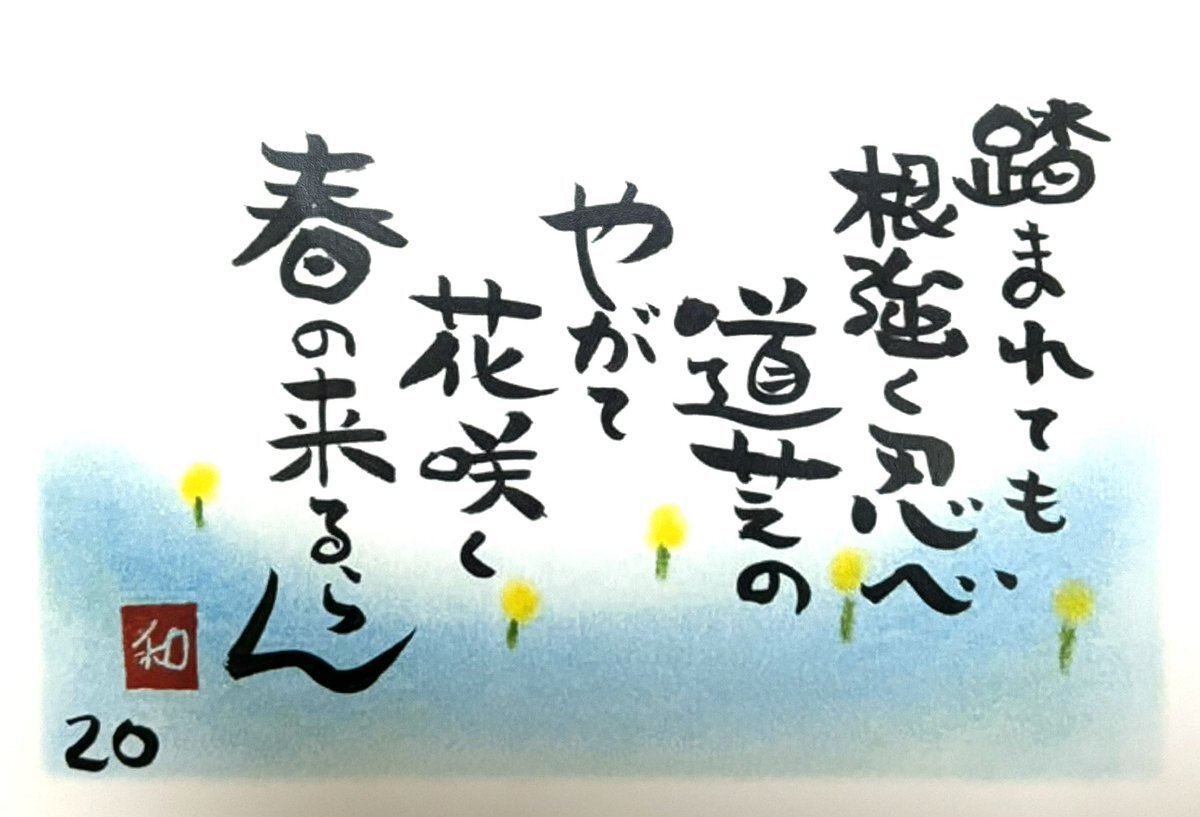 踏まれても
根強く忍べ
道芝の
やがて
花咲く
春の来るらん
和
20